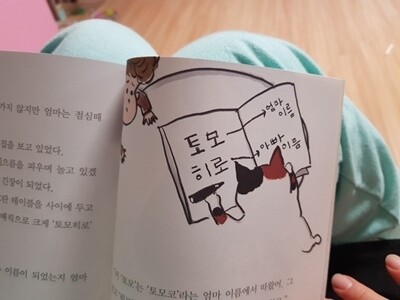 까지 않지만 엄마는 점심때
점을 보고 있었다.
긴장이 되었다.
테이블을 사이에 두고
매직으로 크게 '토모히로'
이름이 되었는지 엄마
토모
히로
엄마
이름
아빠
이름
'토모'는 '토모코'라는 엄마 이름에서 따왔어. 그